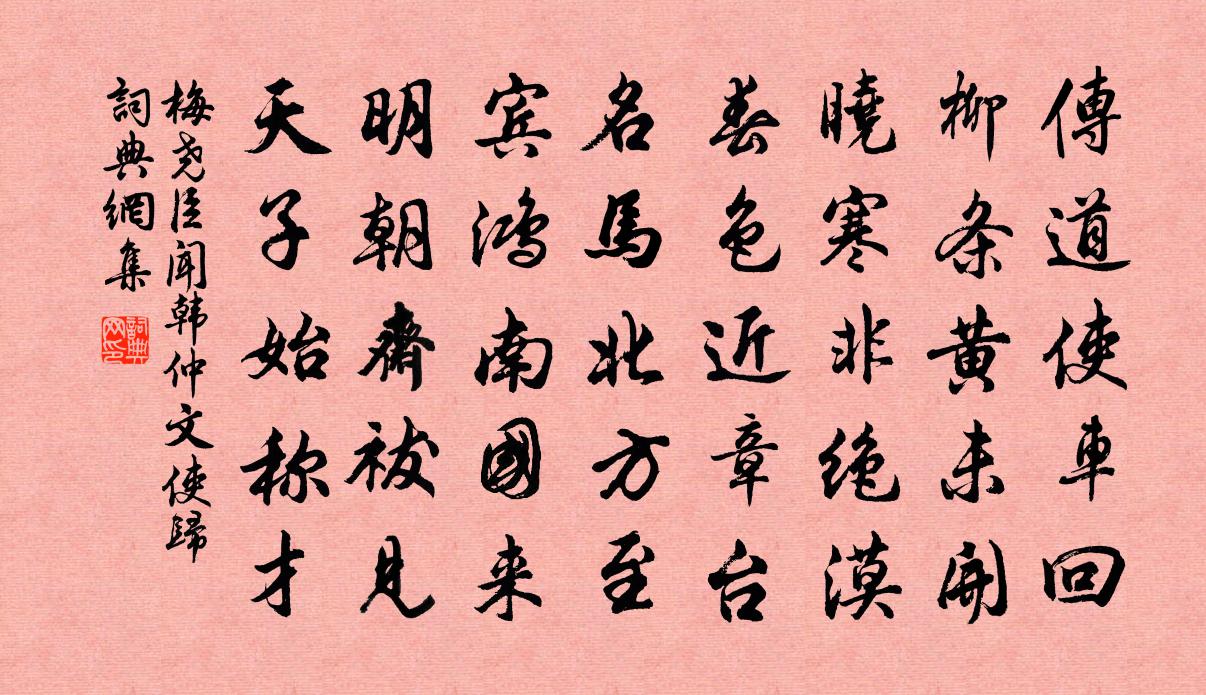 傳道使車回
柳条黄未開
曉寒非绝漠
春色近章台
名馬北方至
宾鸿南國来
明朝齋祓見
天子始称才
梅尧臣闻韩仲文使歸
詞典網集
詞典网印